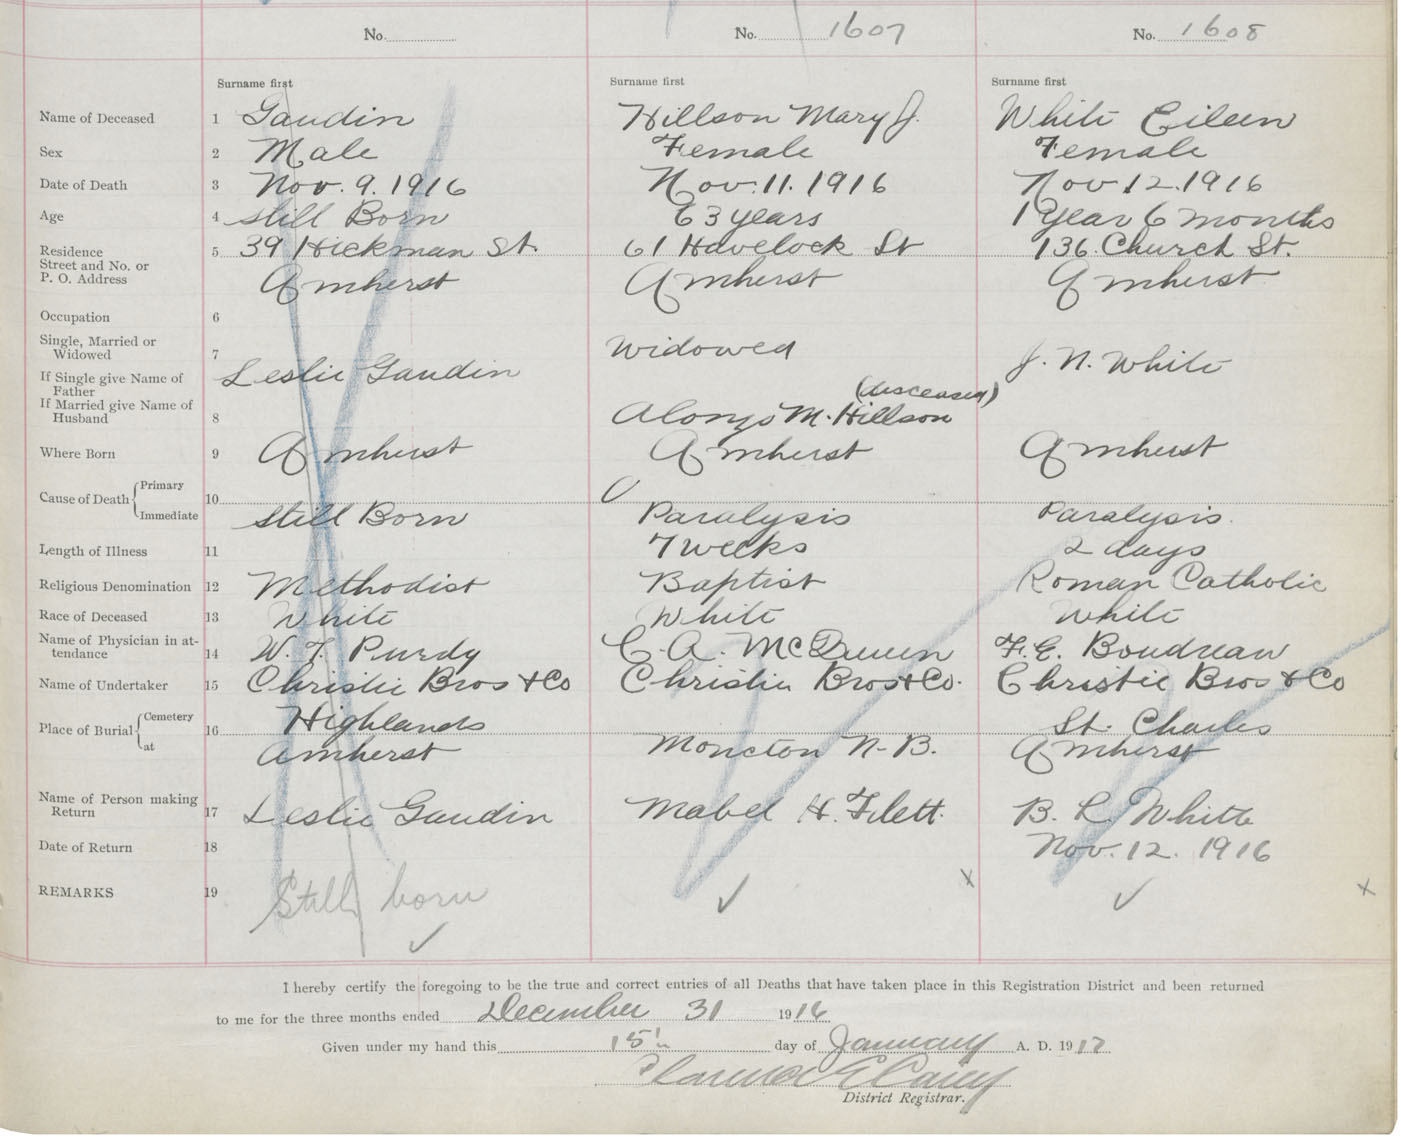 No. No. 1607 No. 1608
Surname first Surname first Surname first
Name of Deceased 1 Gaudin Hillson Mary J. White Eileen
Sex 2 Male Female Female
Date of Death 3 Nov. 9. 1916 Nov. 11. 1916 Nov 12. 1916
Age 4 Still Born 63 years 1 Year 6 months
Residence 5 39 Hickman St. 61 Havelock St 136 Church St.
Street and No. or
P. O. Address Amherst Amherst Amherst
Occupation 6
Single, Married or
Widowed 7 Widowed
If Single give Name of
Father Leslie Gaudin J. N. White
If Married give Name of (desceased)
Husband 8 Alonzo M. Hillson
Where Born 9 Amherst Amherst Amherst
Cause of Death Primary 10
Immediate Still Born Paralysis Paralysis.
Length of Illness 11 7 weeks 2 days
Religious Denomination 12 Methodist Baptist Roman Catholic
Race of Deceased 13 White White White
Name of Physician in at-
tendance 14 W. T. Purdy C. A. McQueen F. E. Boudreau
Name of Undertaker 15 Christie Bros & Co Christie Bros & Co. Christie Bros & Co
Place of Burial Cemetery 16 Highlands St. Charles
at Amherst Moncton N-B. Amherst
Name of Person making
Return 17 Leslie Gaudin Mabel H. B. L. White
Date of Return 18 Nov. 12. 1916
REMARKS 19 Still born
I hereby certify the foregoing to be the true and correct entries of all Deaths that have taken place in this Registration District and been returned
to me for the three months ended December 31 1916
Given under my hand this 15th day of January A. D. 1917
Clarence E Casey
District Registrar.